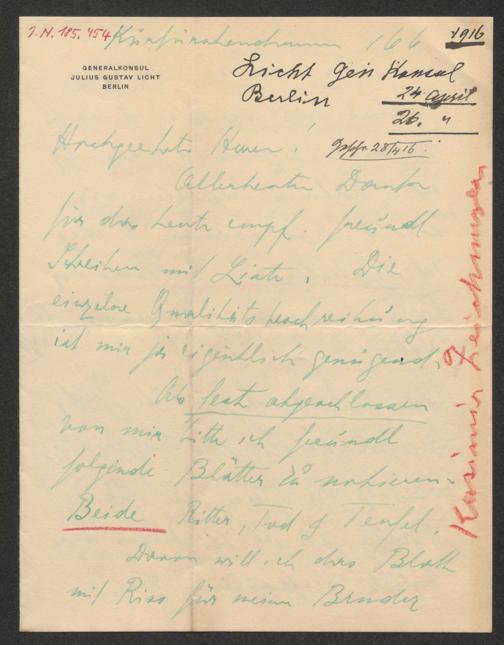 J.N. 185.454
Kurfürstendamm 166
1916
GENERALKONSUL
JULIUS GUSTAV LICHT
BERLIN
Licht Gen Konsul
Berlin
24 April
26. "
28/4 16.
Hochgeehrte Herren!
Allerbesten Dank
für das heute empf. freundl
Schreiben mit Liste. Die
einzelne Qualitätsbeschreibung
ist mir ja eigentlich genügend.
Als fest abgeschlossen
von mir bitte ich freundl
folgende Blätter zu notieren.
Beide Ritter, Tod & Teufel.
Davon will ich das Blatt
mit Riss für meinen Bruder
Kasimir Zeichnungen